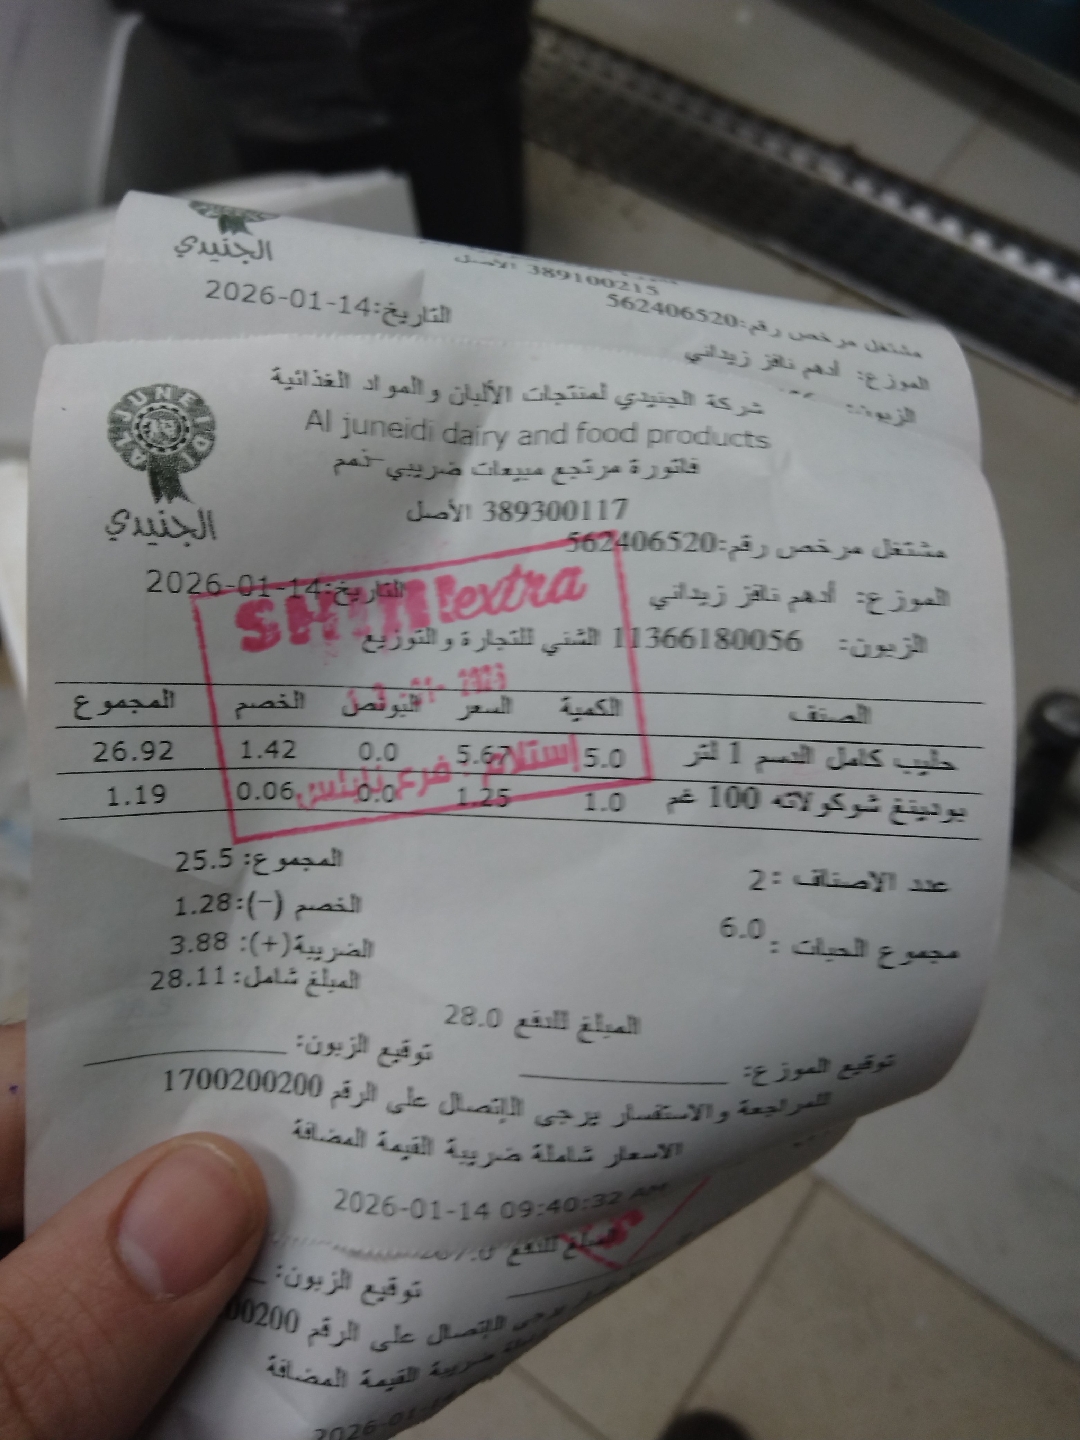 الجنيدي
389100215 الأصل
مشتغل مرخص رقم:562406520
التاريخ:2026-01-14
الموزع: أدهم نافز زيداني
الزبون:
شركة الجنيدي لمنتجات الألبان والمواد الغذائية
AL JUNEIDI
Al juneidi dairy and food products
فاتورة مرتجع مبيعات ضريبي-ذمم
الجنيدي
389300117 الأصل
مشتغل مرخص رقم:562406520
التاريخ:2026-01-14
الموزع: أدهم نافز زيداني
الزبون: 11366180056 الشني للتجارة والتوزيع
extra
إستلام فرع نابلس
الصنف الكمية السعر البونص الخصم المجموع
حليب كامل الدسم 1 لتر 5.0 5.67 0.0 1.42 26.92
بودينغ شوكولاته 100 غم 1.0 1.25 0.0 0.06 1.19
عدد الاصناف :2
المجموع: 25.5
مجموع الحبات : 6.0
الخصم (-):1.28
الضريبة(+): 3.88
المبلغ شامل:28.11
المبلغ للدفع 28.0
توقيع الموزع: توقيع الزبون:
للمراجعة والاستفسار يرجى الإتصال على الرقم 1700200200
الاسعار شاملة ضريبة القيمة المضافة
2026-01-14 09:40:32 AM
المبلغ للدفع
توقيع الزبون:
يرجى الإتصال على الرقم
ضريبة القيمة المضافة